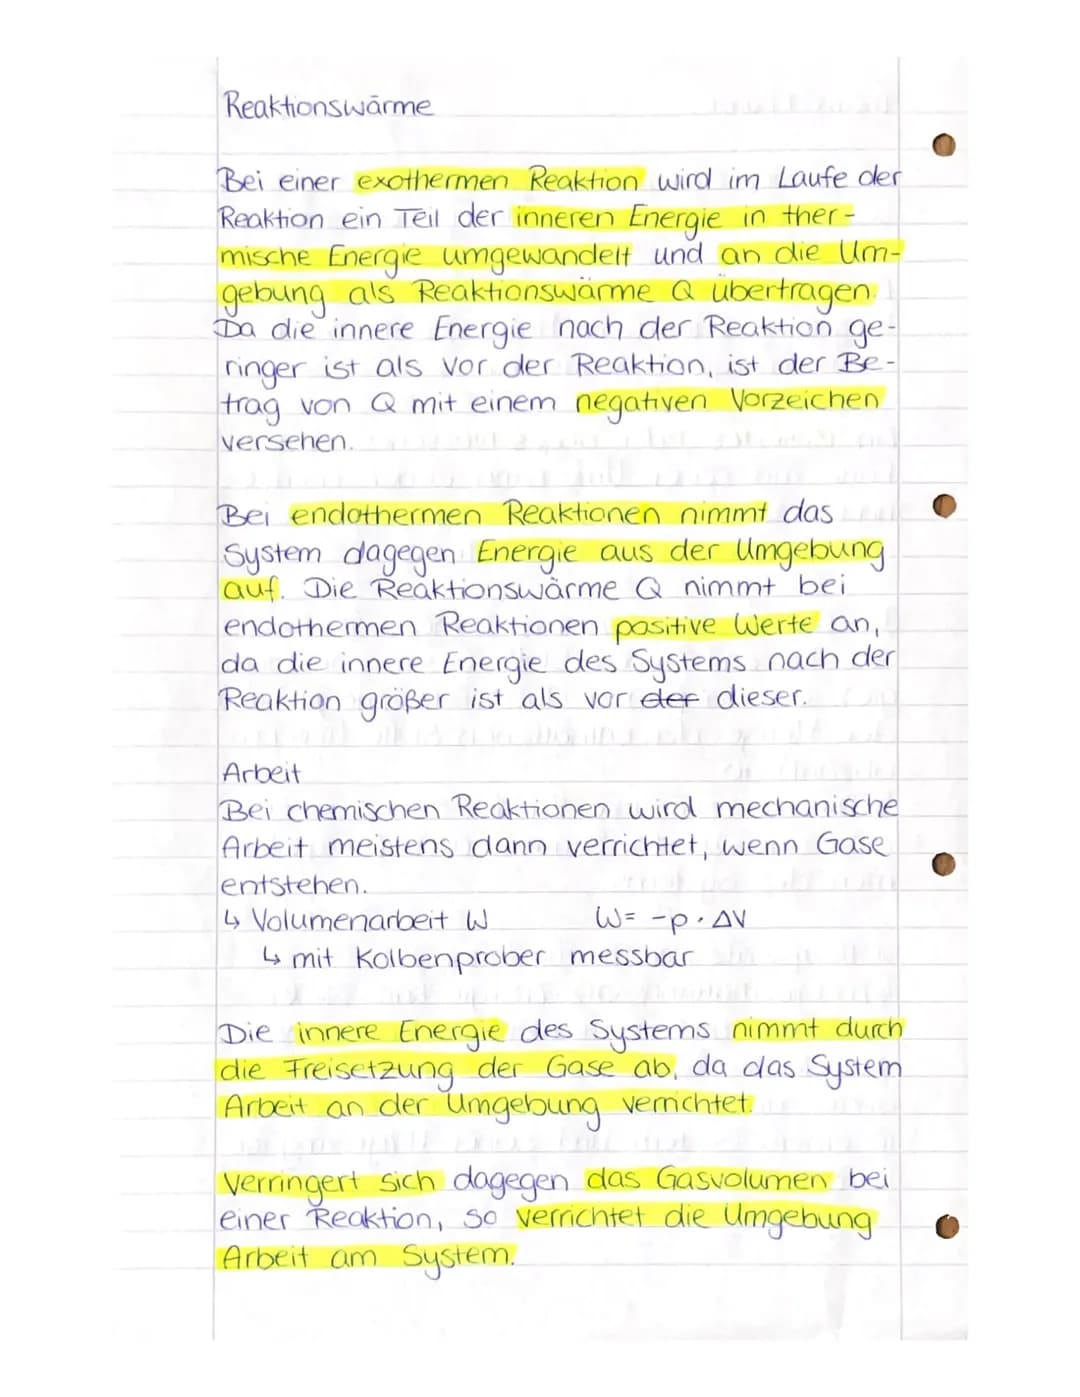 Reaktionswärme
Bei einer exothermen Reaktion wird im Laufe der
Reaktion ein Teil der inneren Energie in ther-
mische Energie umgewandelt und an die Um-
gebung als Reaktionswärme Q übertragen.
Da die innere Energie nach der Reaktion ge-
ringer ist als vor der Reaktion, ist der Be-
trag von Q mit einem negativen Vorzeichen
versehen.
Bei endothermen Reaktionen nimmt das
System dagegen Energie aus der Umgebung
auf. Die Reaktionswärme Q nimmt bei
endothermen Reaktionen positive Werte an,
da die innere Energie des Systems nach der
Reaktion größer ist als vor der dieser.
Arbeit
Bei chemischen Reaktionen wird mechanische
Arbeit meistens dann verrichtet, wenn Gase
entstehen.
↳ Volumenarbeit W W= -p · ΔV
↳ mit Kolbenprober messbar
Die innere Energie des Systems nimmt durch
die Freisetzung der Gase ab, da das System
Arbeit an der Umgebung verrichtet.
Verringert sich dagegen das Gasvolumen bei
einer Reaktion, so verrichtet die Umgebung
Arbeit am System.